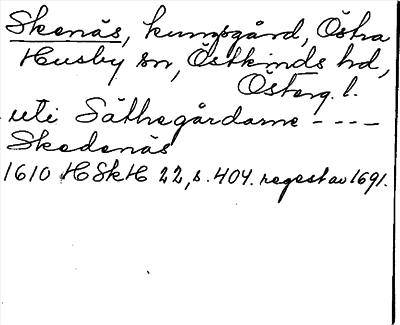 Skenäs, kungsgård, Östra
Husby sn, Östkinds hd,
Österg. l.
uti Säthegårdarne ----
Skedenäs
1610 HSkH 22, s. 404. regest av 1691.